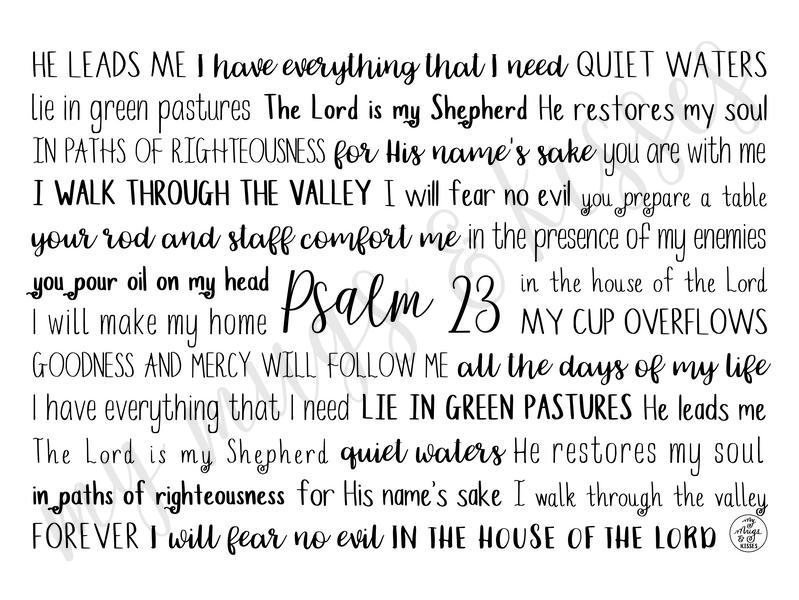 HE LEADS ME I have everything that I need QUIET WATERS
lie in green pastures The Lord is my Shepherd He restores my soul
IN PATHS OF RIGHTEOUSNESS for His name's sake you are with me
I WALK THROUGH THE VALLEY I will fear no evil you prepare a table
your rod and staff comfort me in the presence of my enemies
you pour oil on my head
I will make my home
Psalm 23
in the house of the Lord
MY CUP OVERFLOWS
GOODNESS AND MERCY WILL FOLLOW ME all the days of my life
I have everything that I need LIE IN GREEN PASTURES He leads me
The Lord is my Shepherd quiet waters He restores my soul
in paths of righteousness for His name's sake I walk through the valley
FOREVER I will fear no evil IN THE HOUSE OF THE LORD
my
Mugs
&
KISSES
my mugs & kisses